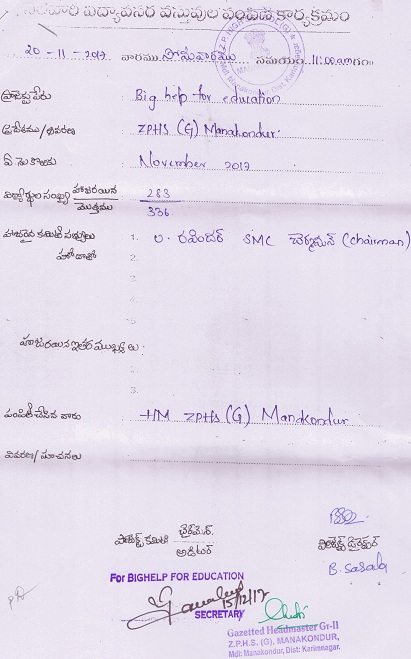 నెలవారి విద్యావసర వస్తువుల పంపిణి కార్యక్రమం
20-11-2017 వారము సోమవారము సమయం 11:00am గం॥
ప్రాజెక్టు పేరు Big help for education
ప్రదేశము / వివరణ ZPHS (G) Manakondur.
ఏ నెల కొఱకు November 2017
విద్యార్థుల సంఖ్య హాజరయిన 283
మొత్తము 336
హాజరైన కమిటీ సభ్యులు 1. ల. రవీందర్ SMC చైర్మెన్ (chairman)
హోదాతో 2.
3.
4.
5.
హాజరయిన ఇతర ముఖ్యులు. 1.
2.
3.
పంపిణి చేసిన వారు HM ZPHS (G) Manakondur
వివరణ/ సూచనలు
ప్రాజెక్ట్ కమిటి చైర్మెన్.
ఆడిటర్
ప్రాజెక్ట్ డైరెక్టర్
B. Sarala
For BIGHELP FOR EDUCATION
15/12/17
SECRETARY
Gazetted Headmaster Gr-II
Z.P.H.S. (G), MANAKONDUR,
Mdl: Manakondur, Dist: Karimnagar.